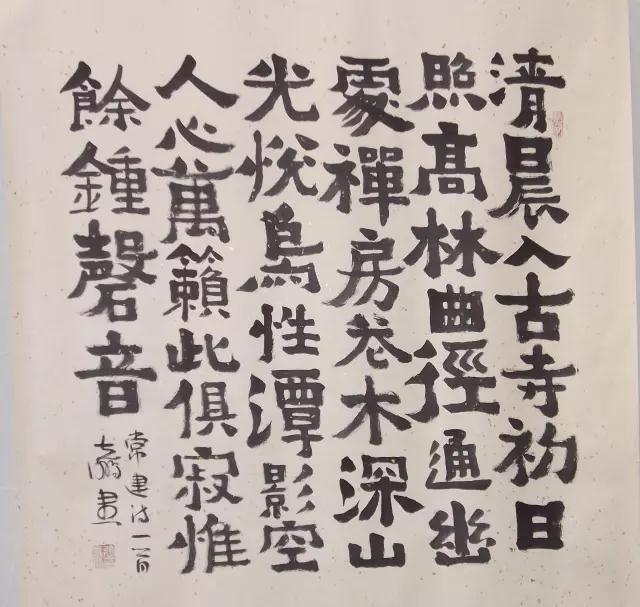 清晨入古寺初日
照高林曲徑通幽
處禪房花木深山
光悅鳥性潭影空
人心萬籟此俱寂惟
餘鍾磬音
常建诗一首